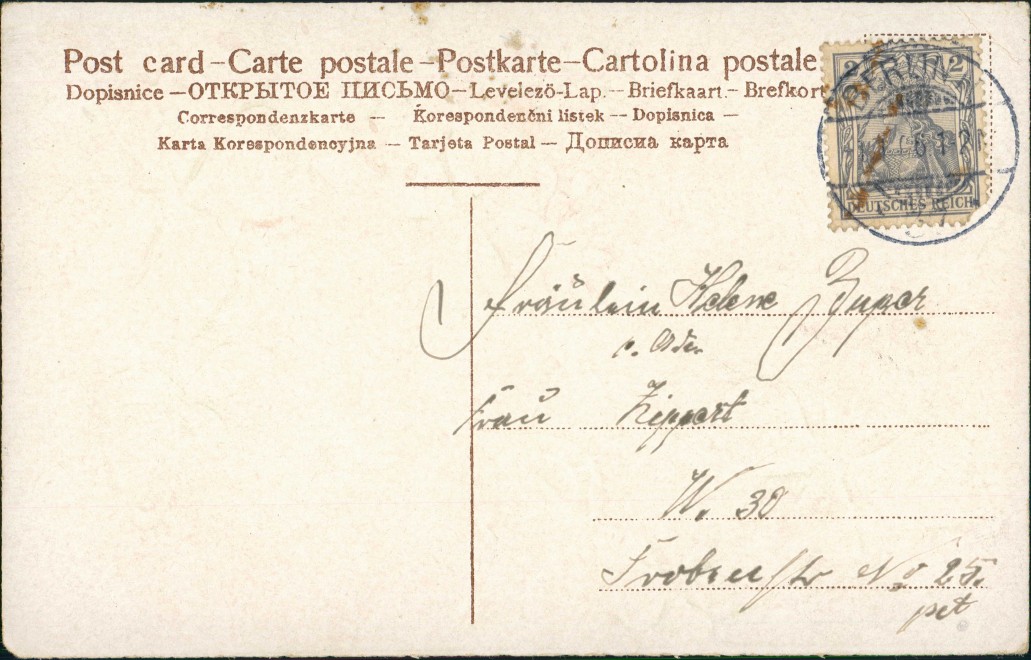 Post card – Carte postale – Postkarte – Cartolina postale
Dopisnice – ОТКРЫТОЕ ПИСЬМО – Levelező-Lap. – Briefkaart. – Brefkort
Correspondenzkarte – Korespondenční listek – Dopisnica –
Karta Korespondencyjna – Tarjeta Postal – Дописна карта
BERLIN
2
DEUTSCHES REICH
Fräulein Helene
Frau Zippert
W. 30
Frobenstr No 25.